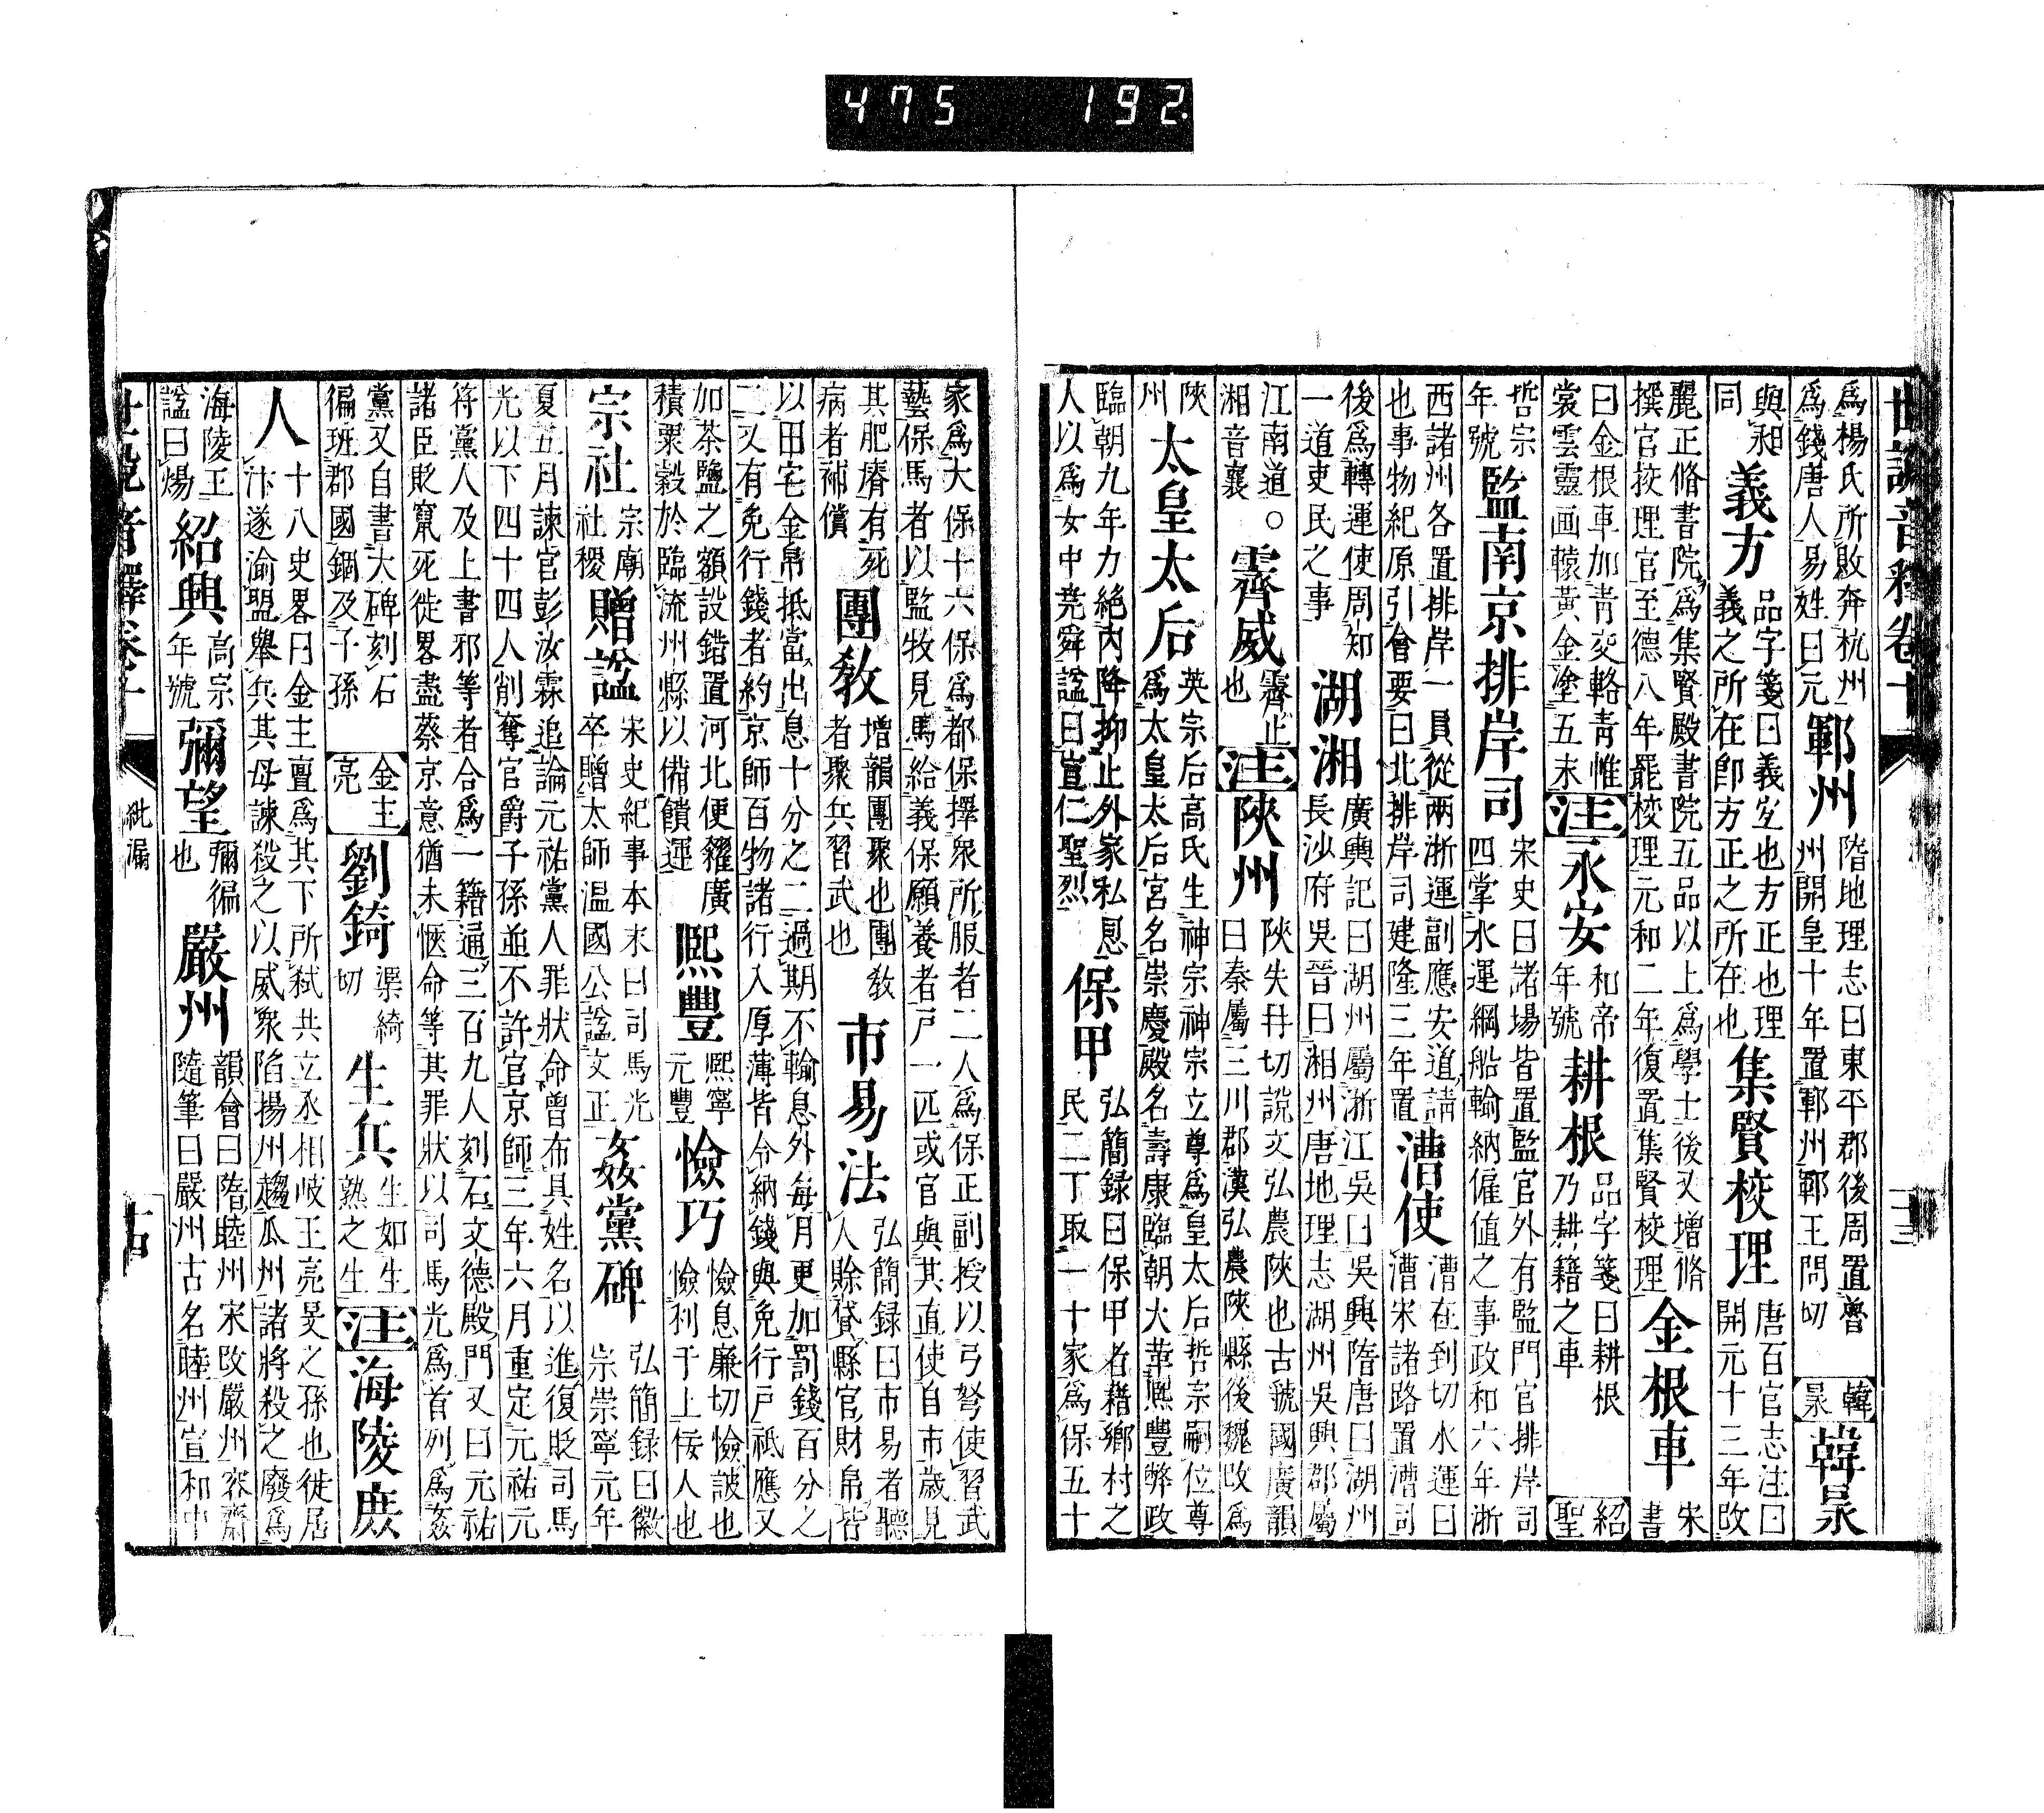 世說音釋卷十
十三
爲楊氏所敗奔杭州爲錢唐人易姓曰元 鄆州 隋地理志曰東平郡後周置魯州開皇十年置鄆州鄆王問切 韓杲 韓杲
與同 義方 品字箋曰義宜也方正也理義之所在卽方正之所在也 集賢校理 唐百官志注曰開元十三年改
麗正脩書院爲集賢殿書院五品以上爲學士後又增脩撰官挍理官至德八年罷校理元和二年復置集賢校理 金根車 宋書
曰金根車加青交輅青帷裳雲靈画轅黃金塗五末 注 永安 和帝年號 耕根 品字箋曰耕根乃耕籍之車 紹聖
哲宗年號 監南京排岸司 宋史曰諸場皆置監官外有監門官排岸司四掌水運綱船輸納僱值之事政和六年浙
西諸州各置排岸一員從兩浙運副應安道請也事物紀原引會要曰北排岸司建隆三年置 漕使 漕在到切水運曰漕宋諸路置漕司
後爲轉運使周知一道吏民之事 湖湘 廣輿記曰湖州屬浙江吳曰吳興隋唐曰湖州長沙府吳晉曰湘州唐地理志湖州吳興郡屬
江南道○湘音襄 霽威 霽止也 注 陝州 陝失冉切說文弘農陝也古虢國廣韻曰秦屬三川郡漢弘農陝縣後魏改爲
陝州 太皇太后 英宗后高氏生神宗神宗立尊爲皇太后哲宗嗣位尊爲太皇太后宮名崇慶殿名壽康臨朝大革熙豐弊政
臨朝九年力絕內降抑止外家私恩人以爲女中堯舜諡曰宣仁聖烈 保甲 弘簡録曰保甲者籍鄉村之民二丁取一十家爲保五十
家爲大保十六保爲都保擇衆所服者二人爲保正副授以弓弩使習武藝保馬者以監牧見馬給義保願養者戶一匹或官與其直使自市歲見
其肥瘠有死病者補償 團教 增韻團聚也團教者聚兵習武也 市易法 弘簡録曰市易者聽人賒貸縣官財帛皆
以田宅金帛抵當出息十分之二過期不輸息外每月更加罰錢百分之二又有免行錢者約京師百物諸行入厚薄皆令納錢與免行戶祇應又
加茶鹽之額設錯置河北便糴廣積粟穀於臨流州縣以備饋運 熙豐 熙寧元豐 憸巧 憸息廉切憸詖也憸利于上佞人也
宗社 宗廟社稷 贈諡 宋史紀事本末曰司馬光卒贈太師温國公諡文正 姦黨碑 弘簡録曰徽宗崇寧元年
夏五月諫官彭汝霖追論元祐黨人罪狀命曾布具姓名以進復貶司馬光以下四十四人削奪官爵子孫並不許官京師三年六月重定元祐元
符黨人及上書邪等者合爲一籍通三百九人刻石文德殿門又曰元祐諸臣貶竄死徙畧盡蔡京意猶未愜命等其罪狀以司馬光爲首列爲姦
黨又自書大碑刻石徧班郡國錮及子孫 金主亮 劉錡 渠綺切 生兵 生如生熟之生 注 海陵庶
人 十八史畧曰金主亶爲其下所弒共立丞相岐王亮旻之孫也徙居汴遂渝盟舉兵其母諫殺之以威衆陷揚州趨瓜州諸將殺之廢爲
海陵王諡曰煬 紹興 高宗年號 彌望 彌徧也 嚴州 韻會曰隋睦州宋改嚴州容齋隨筆曰嚴州古名睦州宣和中
世說音釋卷十
紕漏
十四
475 192